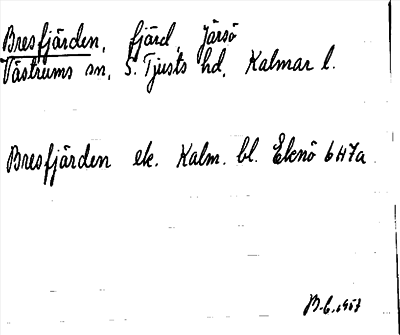 Bresfjärden, fjärd, Järsö
Västrums sn, S. Tjusts hd, Kalmar l.
Bresfjärden ek. Kalm. bl. Eknö 6 H7a